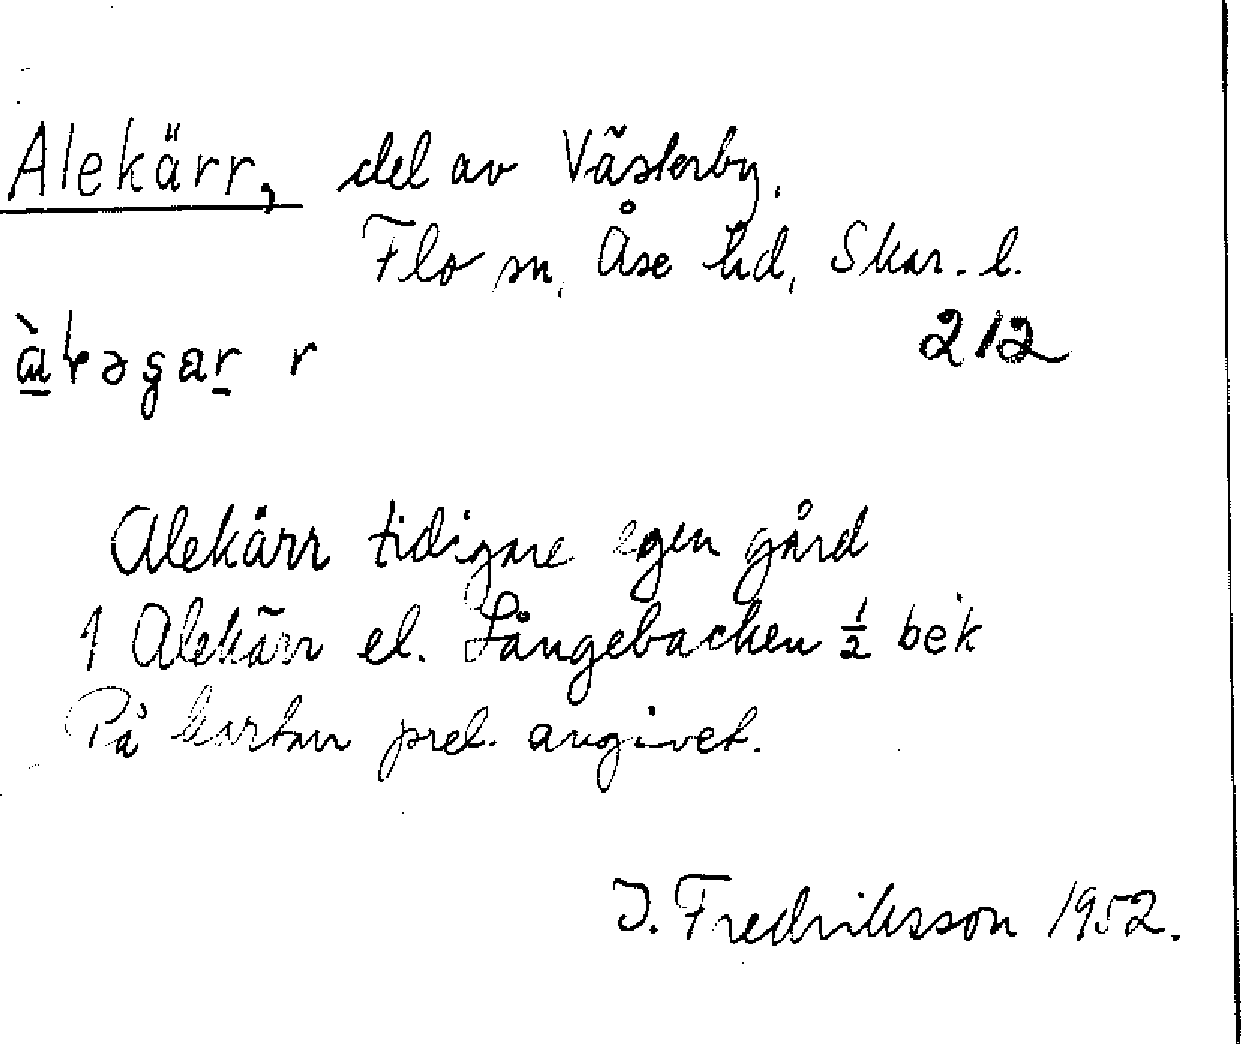 Alekärr, del av Västerby,
Flo sn, Åse hd, Skar. l.
212
r
Alekärr tidigare egen gård
1 Alekärr el. Långebacken ½ bek
På kartan prel. angivet.
J. Fredriksson 1952.